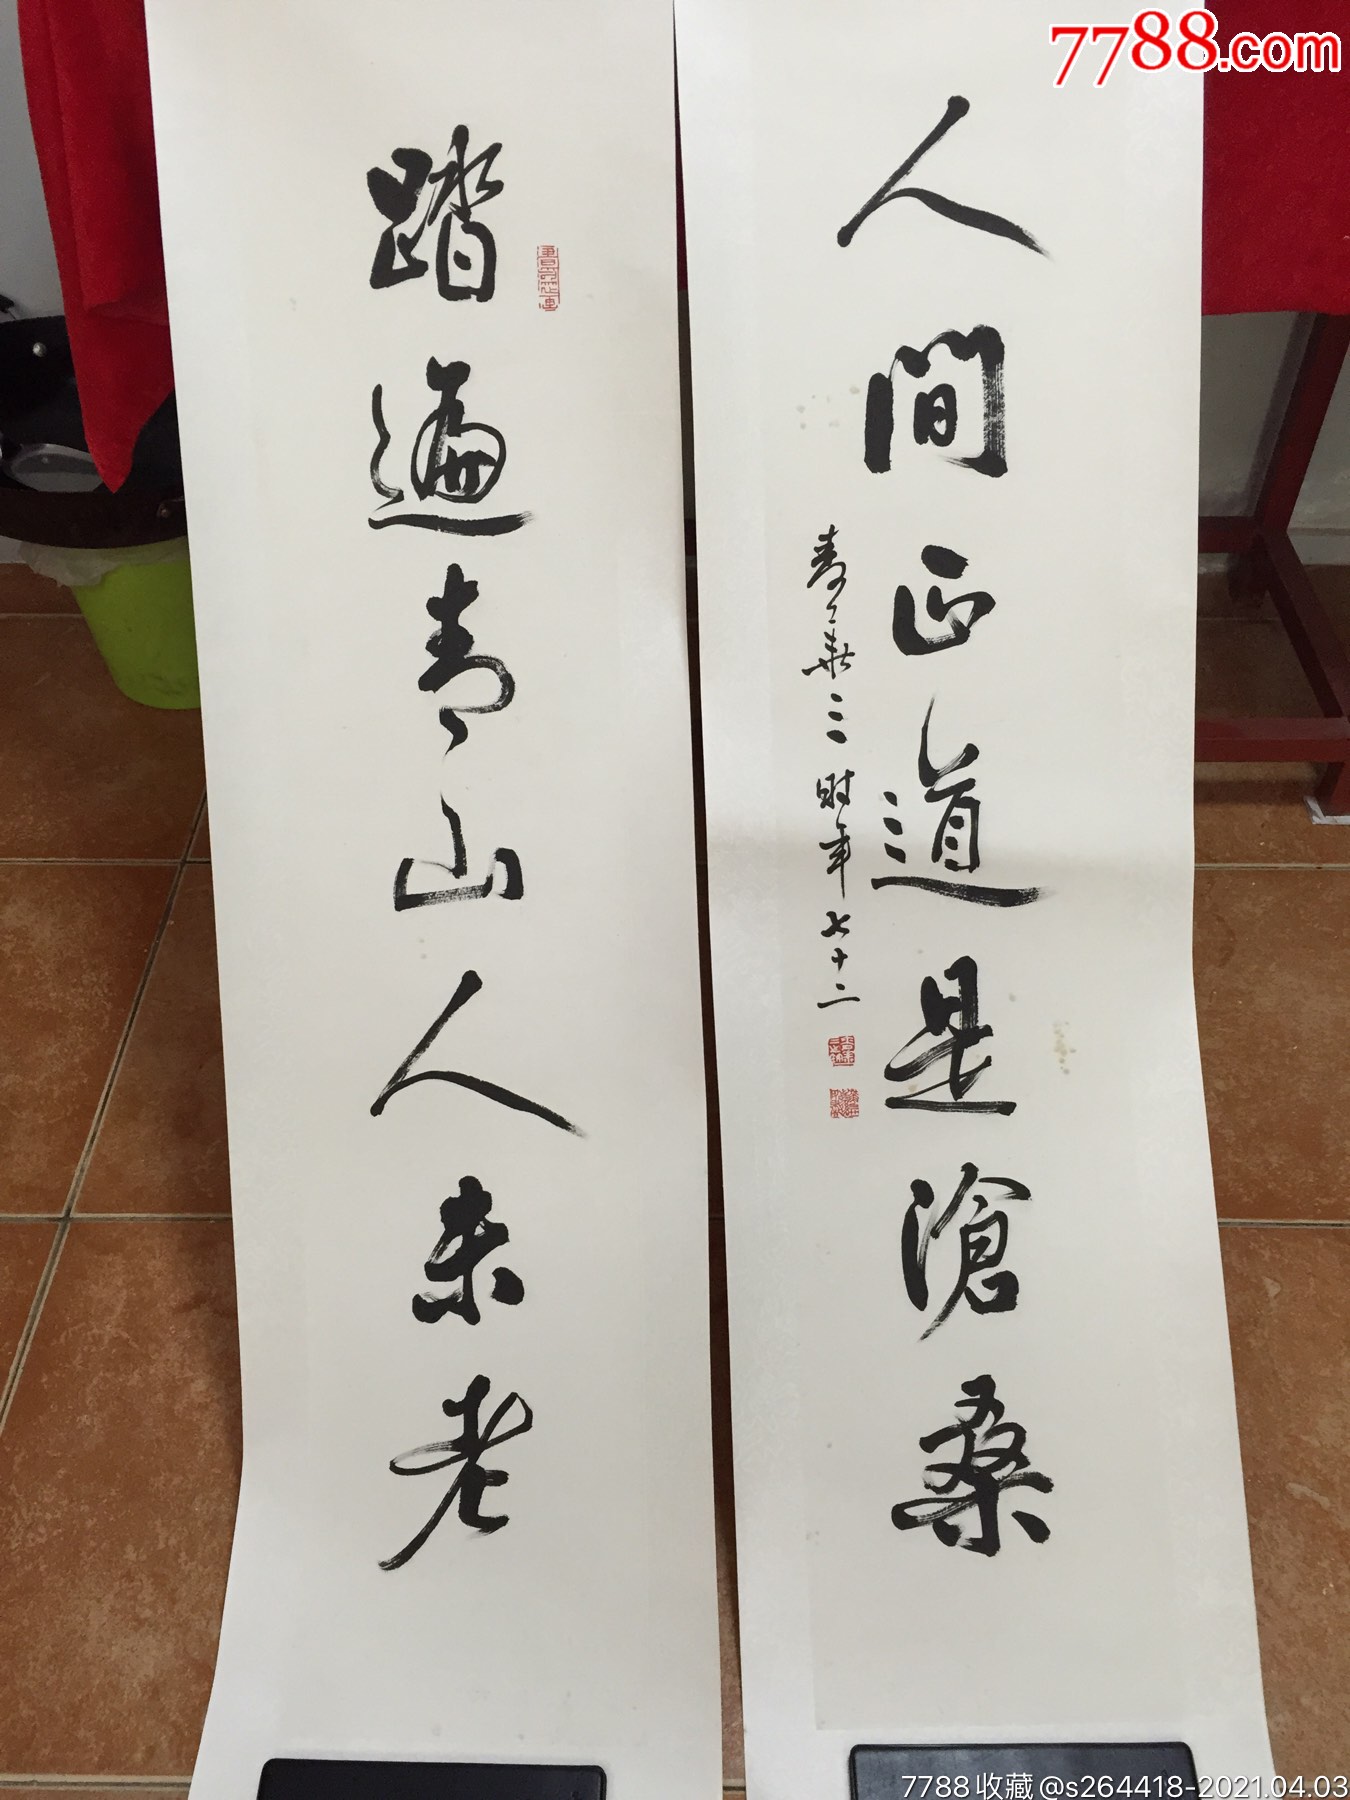 7788.com
踏遍青山人未老
人間正道是滄桑
三 时年七十二
7788收藏@s264418-2021.04.03